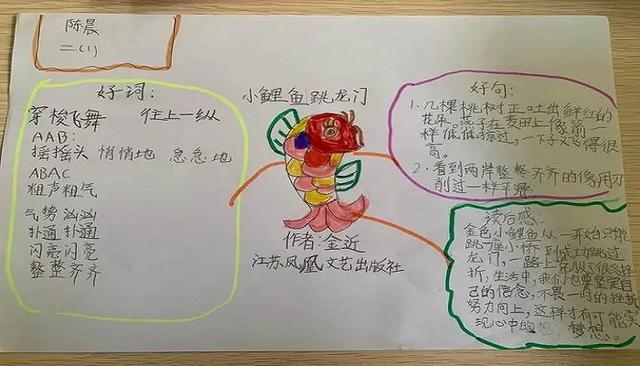 陈晨
二(1)
好词:
穿梭飞舞 往上一纵
AAB:
摇摇头 悄悄地 急急地
ABAC
粗声粗气
气势汹汹
扑通扑通
闪亮闪亮
整整齐齐
小鲤鱼跳龙门
作者:金近
江苏凤凰文艺出版社
好句:
1、几棵桃树正吐出鲜红的
花来。燕子在麦田上像箭一
样低低掠过,一下子又飞得很
高。
2、看到两岸整整齐齐的像用刀
削过一样平滑。
读后感:
金色小鲤鱼从一开始只能
跳一座小桥到成功跳过
龙门,一路上克服了很多挫
折,生活中,我们也要坚定自
己的信念,不畏一时的挫折
努力向上,这样才有可能实
现心中的 梦想。